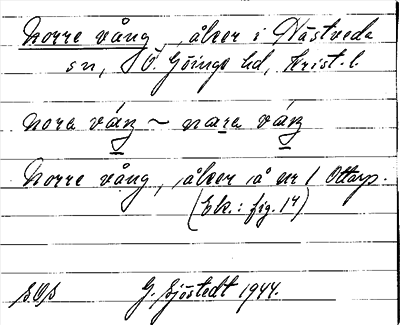 Norre vång, åker i Nästveda
sn, V. Göinge hd, Krist. l.
nora váŋ ~ nara váŋ
Norre vång, åker å nr 1 Ottarp.
(Ek.: fig. 17)
G. Sjöstedt 1944.